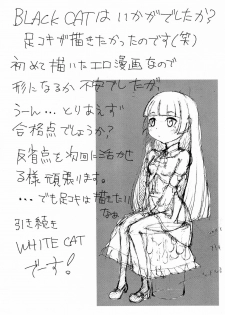 BLACK CATは いかがでしたか?
足コキが描きたかったのです(笑)
初めて描いたエロ漫画なので
形になるか不安でしたが、
うーん…とりあえず
合格点でしょうか?
反省点を次回に活かせ
る様頑張ります。
…でも足コキは描きたい
なぁ
引き続き
WHITE CAT
でーす!